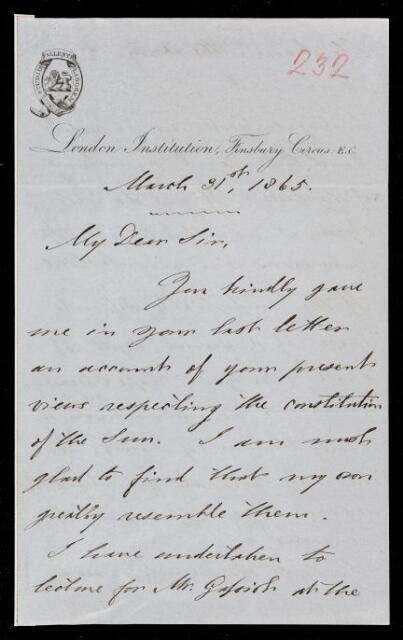 232
London Institution, Finsbury Circus. E.C.
March 31st, 1865.
My Dear Sir,
You kindly gave
me in your last letter
an account of your present
views respecting the constitution
of the Sun. I am
glad to find that my own
greatly resemble them.
I have undertaken to
lecture for Mr. Gassiot at the